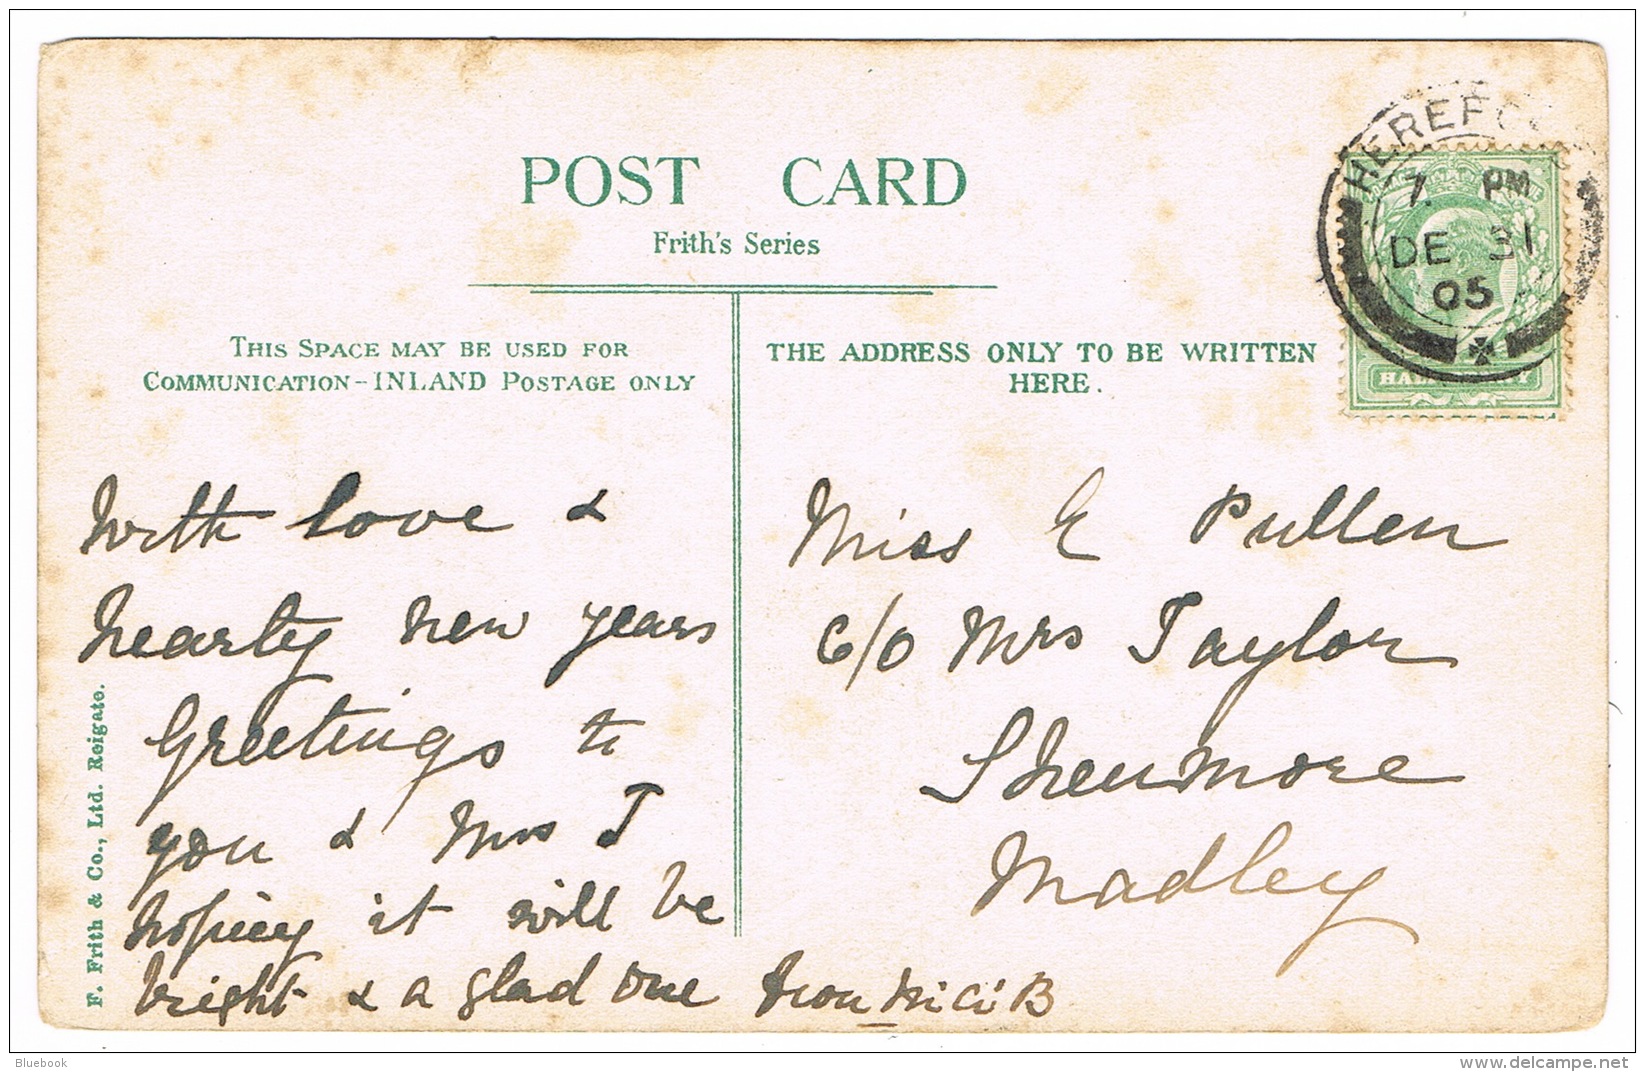 POST CARD
Frith's Series
THIS SPACE MAY BE USED FOR
COMMUNICATION-INLAND POSTAGE ONLY
THE ADDRESS ONLY TO BE WRITTEN
HERE.
HEREFO
7. PM
DE 31
05
HALFPENNY
With love &
hearty new years
Greetings to
you & Mrs T
hoping it will be
bright & a glad one from B
Miss E Pullen
c/o Mrs Taylor
Shenmore
Madley
F. Frith & Co., Ltd. Reigate.
Bluebook
delcampe.net